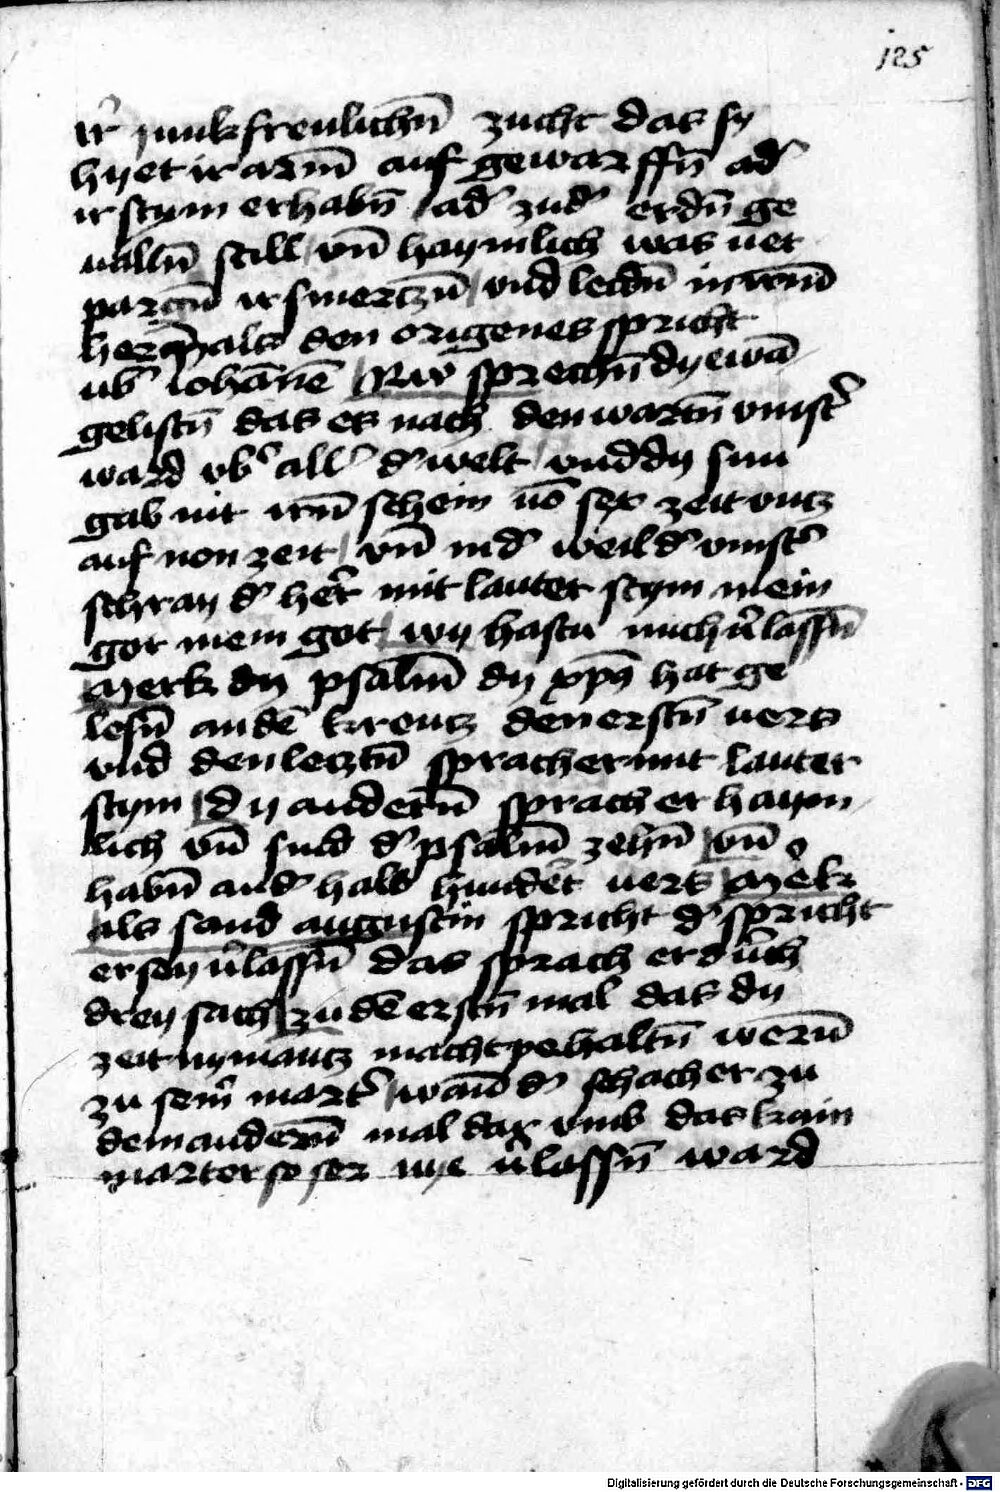 125
ir̄ junkfreulichn̄ zucht das sy
hyet ir arm̄ auf geworffn̄ ad̓
ir stym erhabn̄ / ad̓ zu d̓ erdn̄ ge
ualln̄ still / vn̄ haymlich was uer
pargn̄ ir smertzn̄ / vnd leidn̄ in irem̄
herczn̄ als den origenes spricht
ub̓ iohānē Nw sprechn̄ dy ewā
gelistn̄ das es nach den wartn̄ vinst̓
ward vb̓ all̓ d̓ welt / vnd dy sun
gab nit irn̄ schein uō sext zeit untz
auf non zeit / vn̄ in d̓ weil d̓ vinst̓
schray d̓ her̄ mit lauter stym mein
got mein got / wy hastu mich v̓lassn̄
Merk dy psalm̄ dy xp̄s hat ge
lesn̄ an dē kreutz den erstn̄ uers
vnd den lecztn̄ sprach er mit lauter
stym / dy andern̄ sprach er haym
lich vn̄ sind d̓ psalm̄ zehn̄ / vn̄
habn̄ and̓ halb hundert uers Merk
als sand augustin spricht d̓ spricht
er sey v̓lassn̄ das sprach er durch
drey sach / zu dē erstn̄ mal das dy
zeit nymantz macht pehaltn̄ wern̄
zu sein̄ mart̓ / wan̄ d̓ schacher zu
dem andern̄ mal dar vmb das kain
marter so ser nye v̓lassn̄ ward
Digitalisierung gefördert durch die Deutsche Forschungsgemeinschaft - DFG